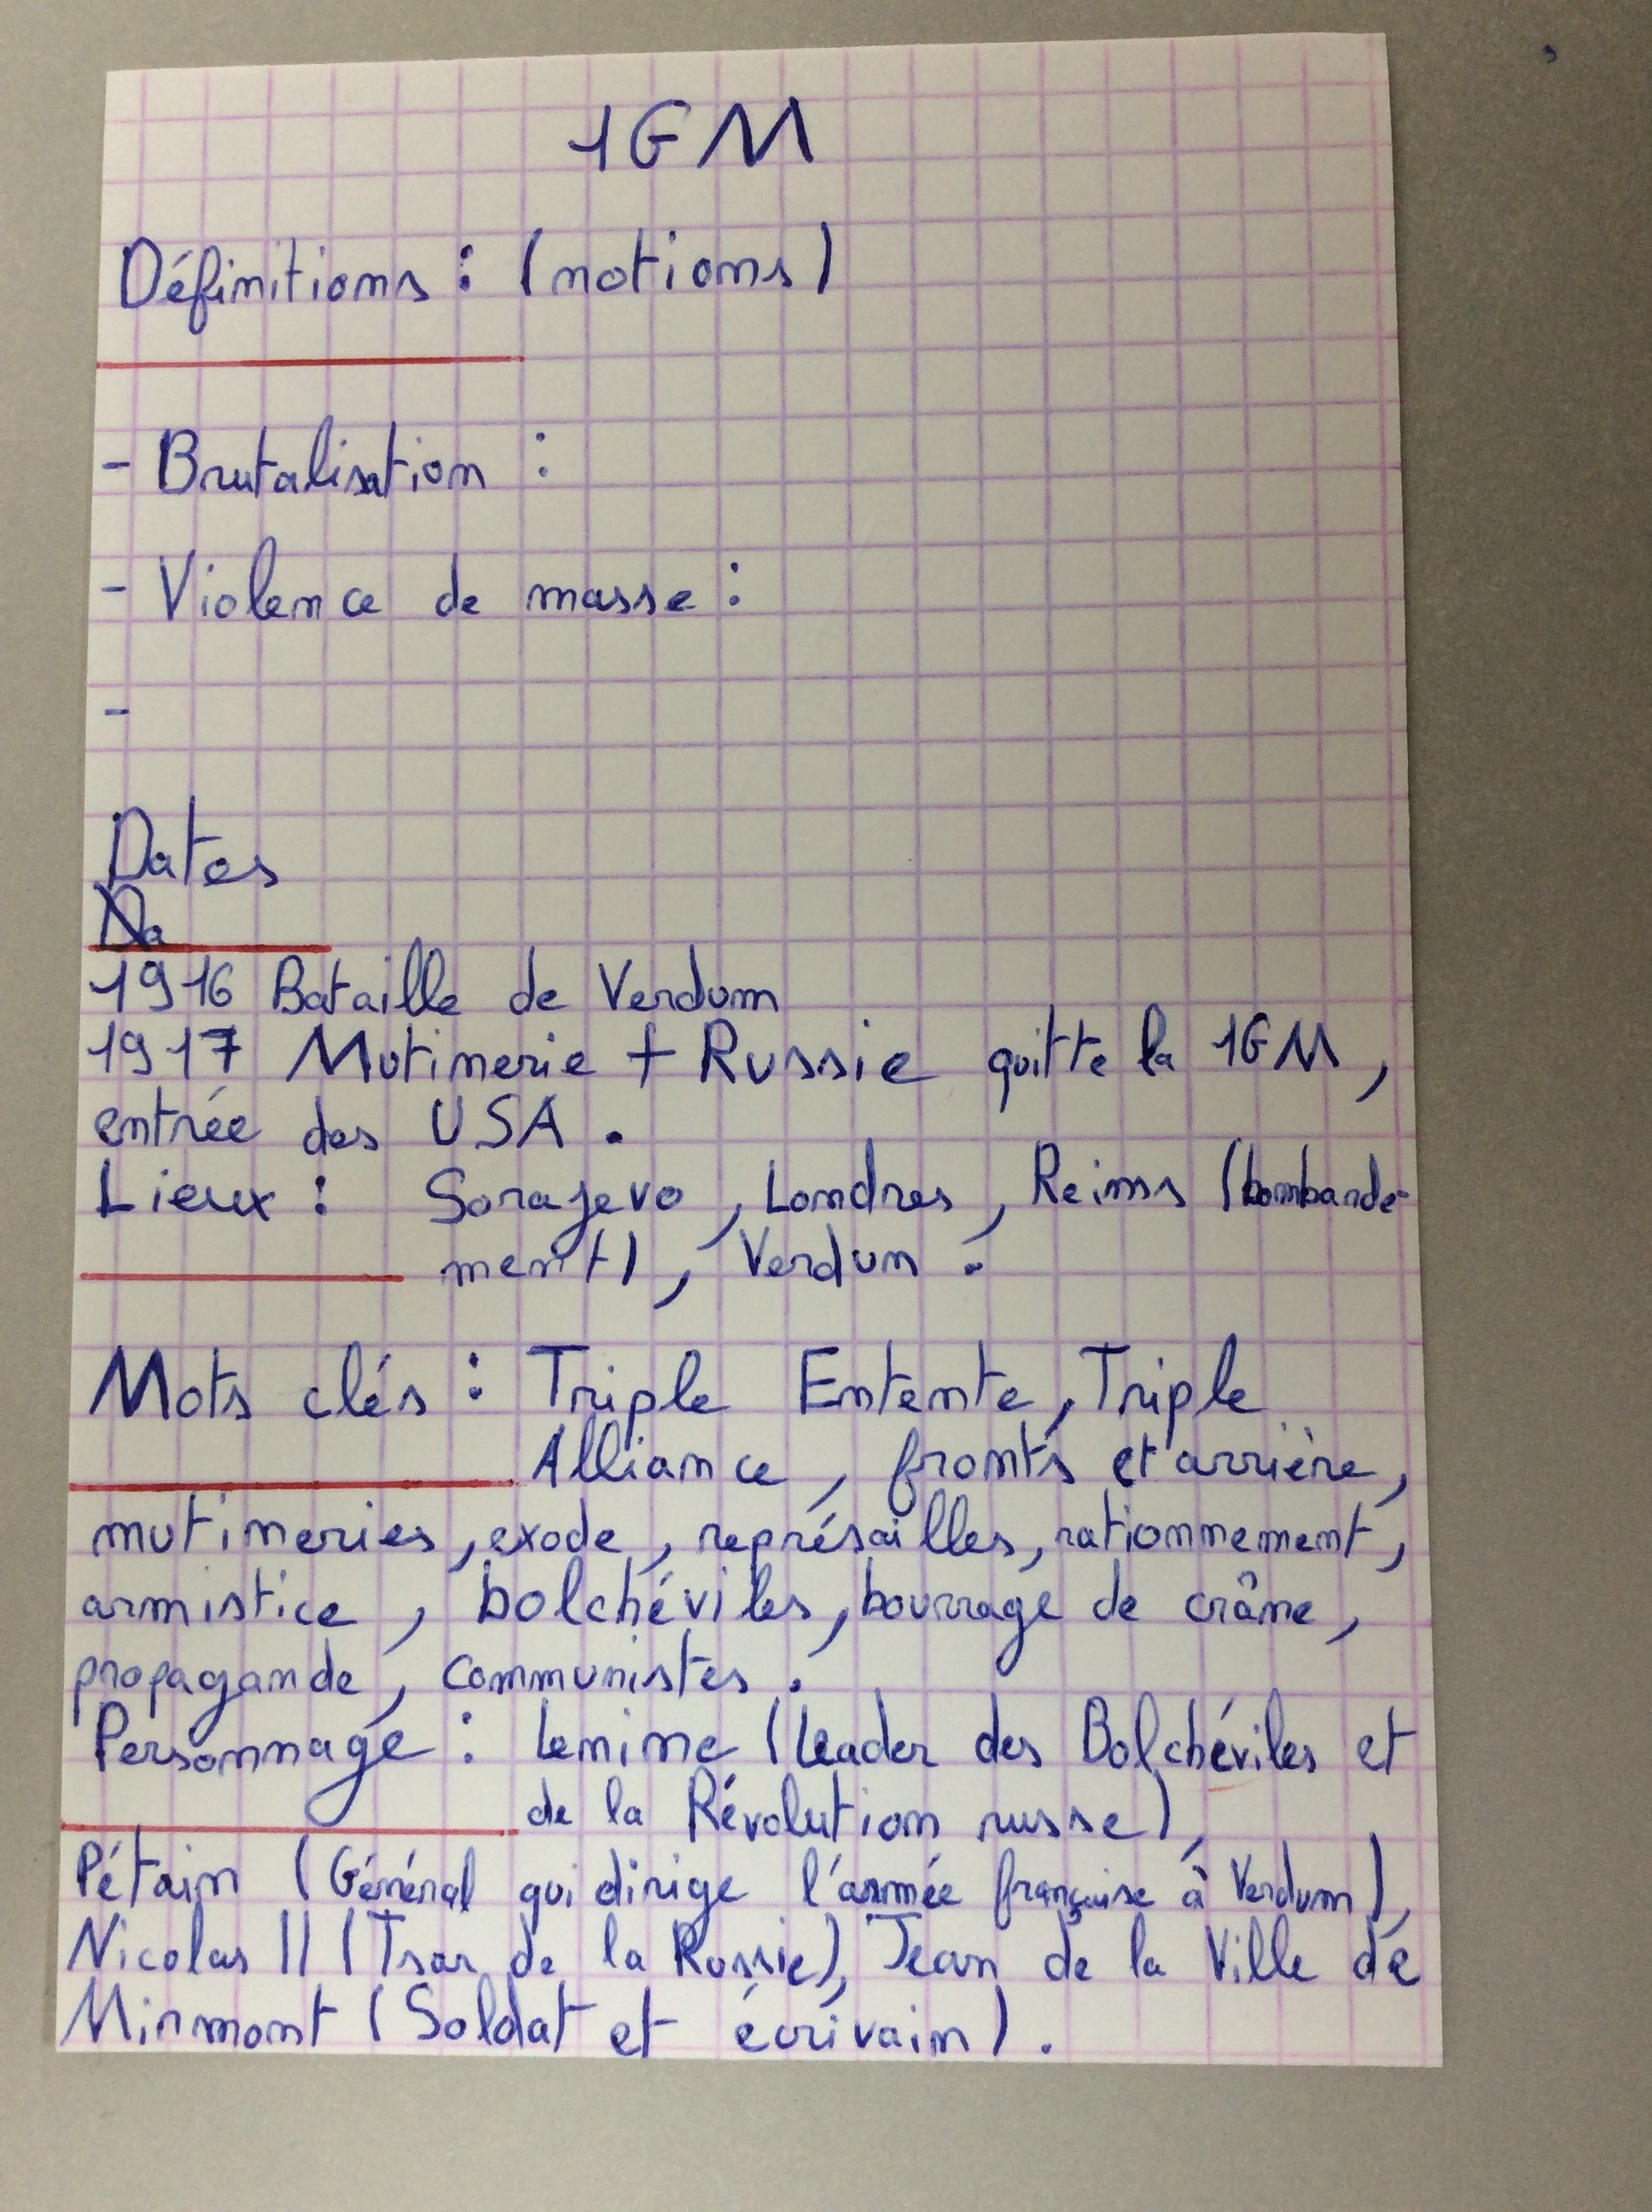 1GM
Définitions : (notions)
- Brutalisation :
- Violence de masse :
-
Dates
Da
1916 Bataille de Verdum
1917 Mutinerie + Russie quitte la 1GM,
entrée des USA.
Lieux : Sarajevo, Londres, Reims (bombarde-
ment), Verdun.
Mots clés : Triple Entente, Triple
Alliance, fronts et arrière,
mutineries, exode, représailles, rationnement,
armistice, bolchéviles, bourrage de crâne,
propagande, communistes.
Personnage : Lenine (leader des Bolchéviles et
de la Révolution russe),
Pétain (Général qui dirige l'armée française à Verdum),
Nicolas II (Tsar de la Russie), Jean de la Ville de
Mirmont (Soldat et écrivain).